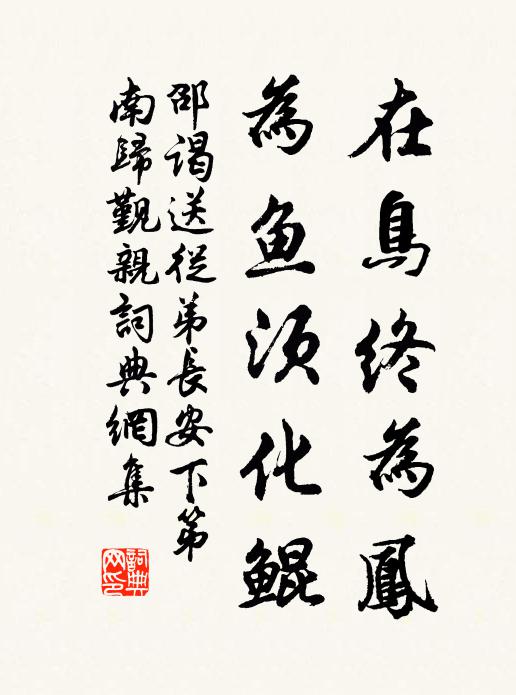 在鳥終為鳳
為魚須化鯤
邵謁送從弟長安下第
南歸覲親詞典網集
詞典網印